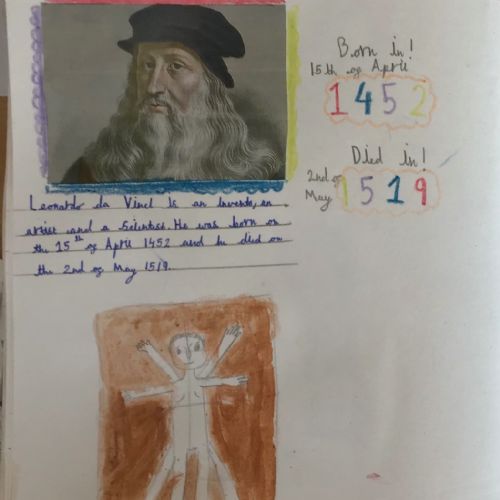 Born in!
15th of April
1452
Died in!
2nd of May
1519
Leonardo da Vinci is an inventor, an
artist and a Scientist. He was born on
the 15th of April 1452 and he died on
the 2nd of May 1519.